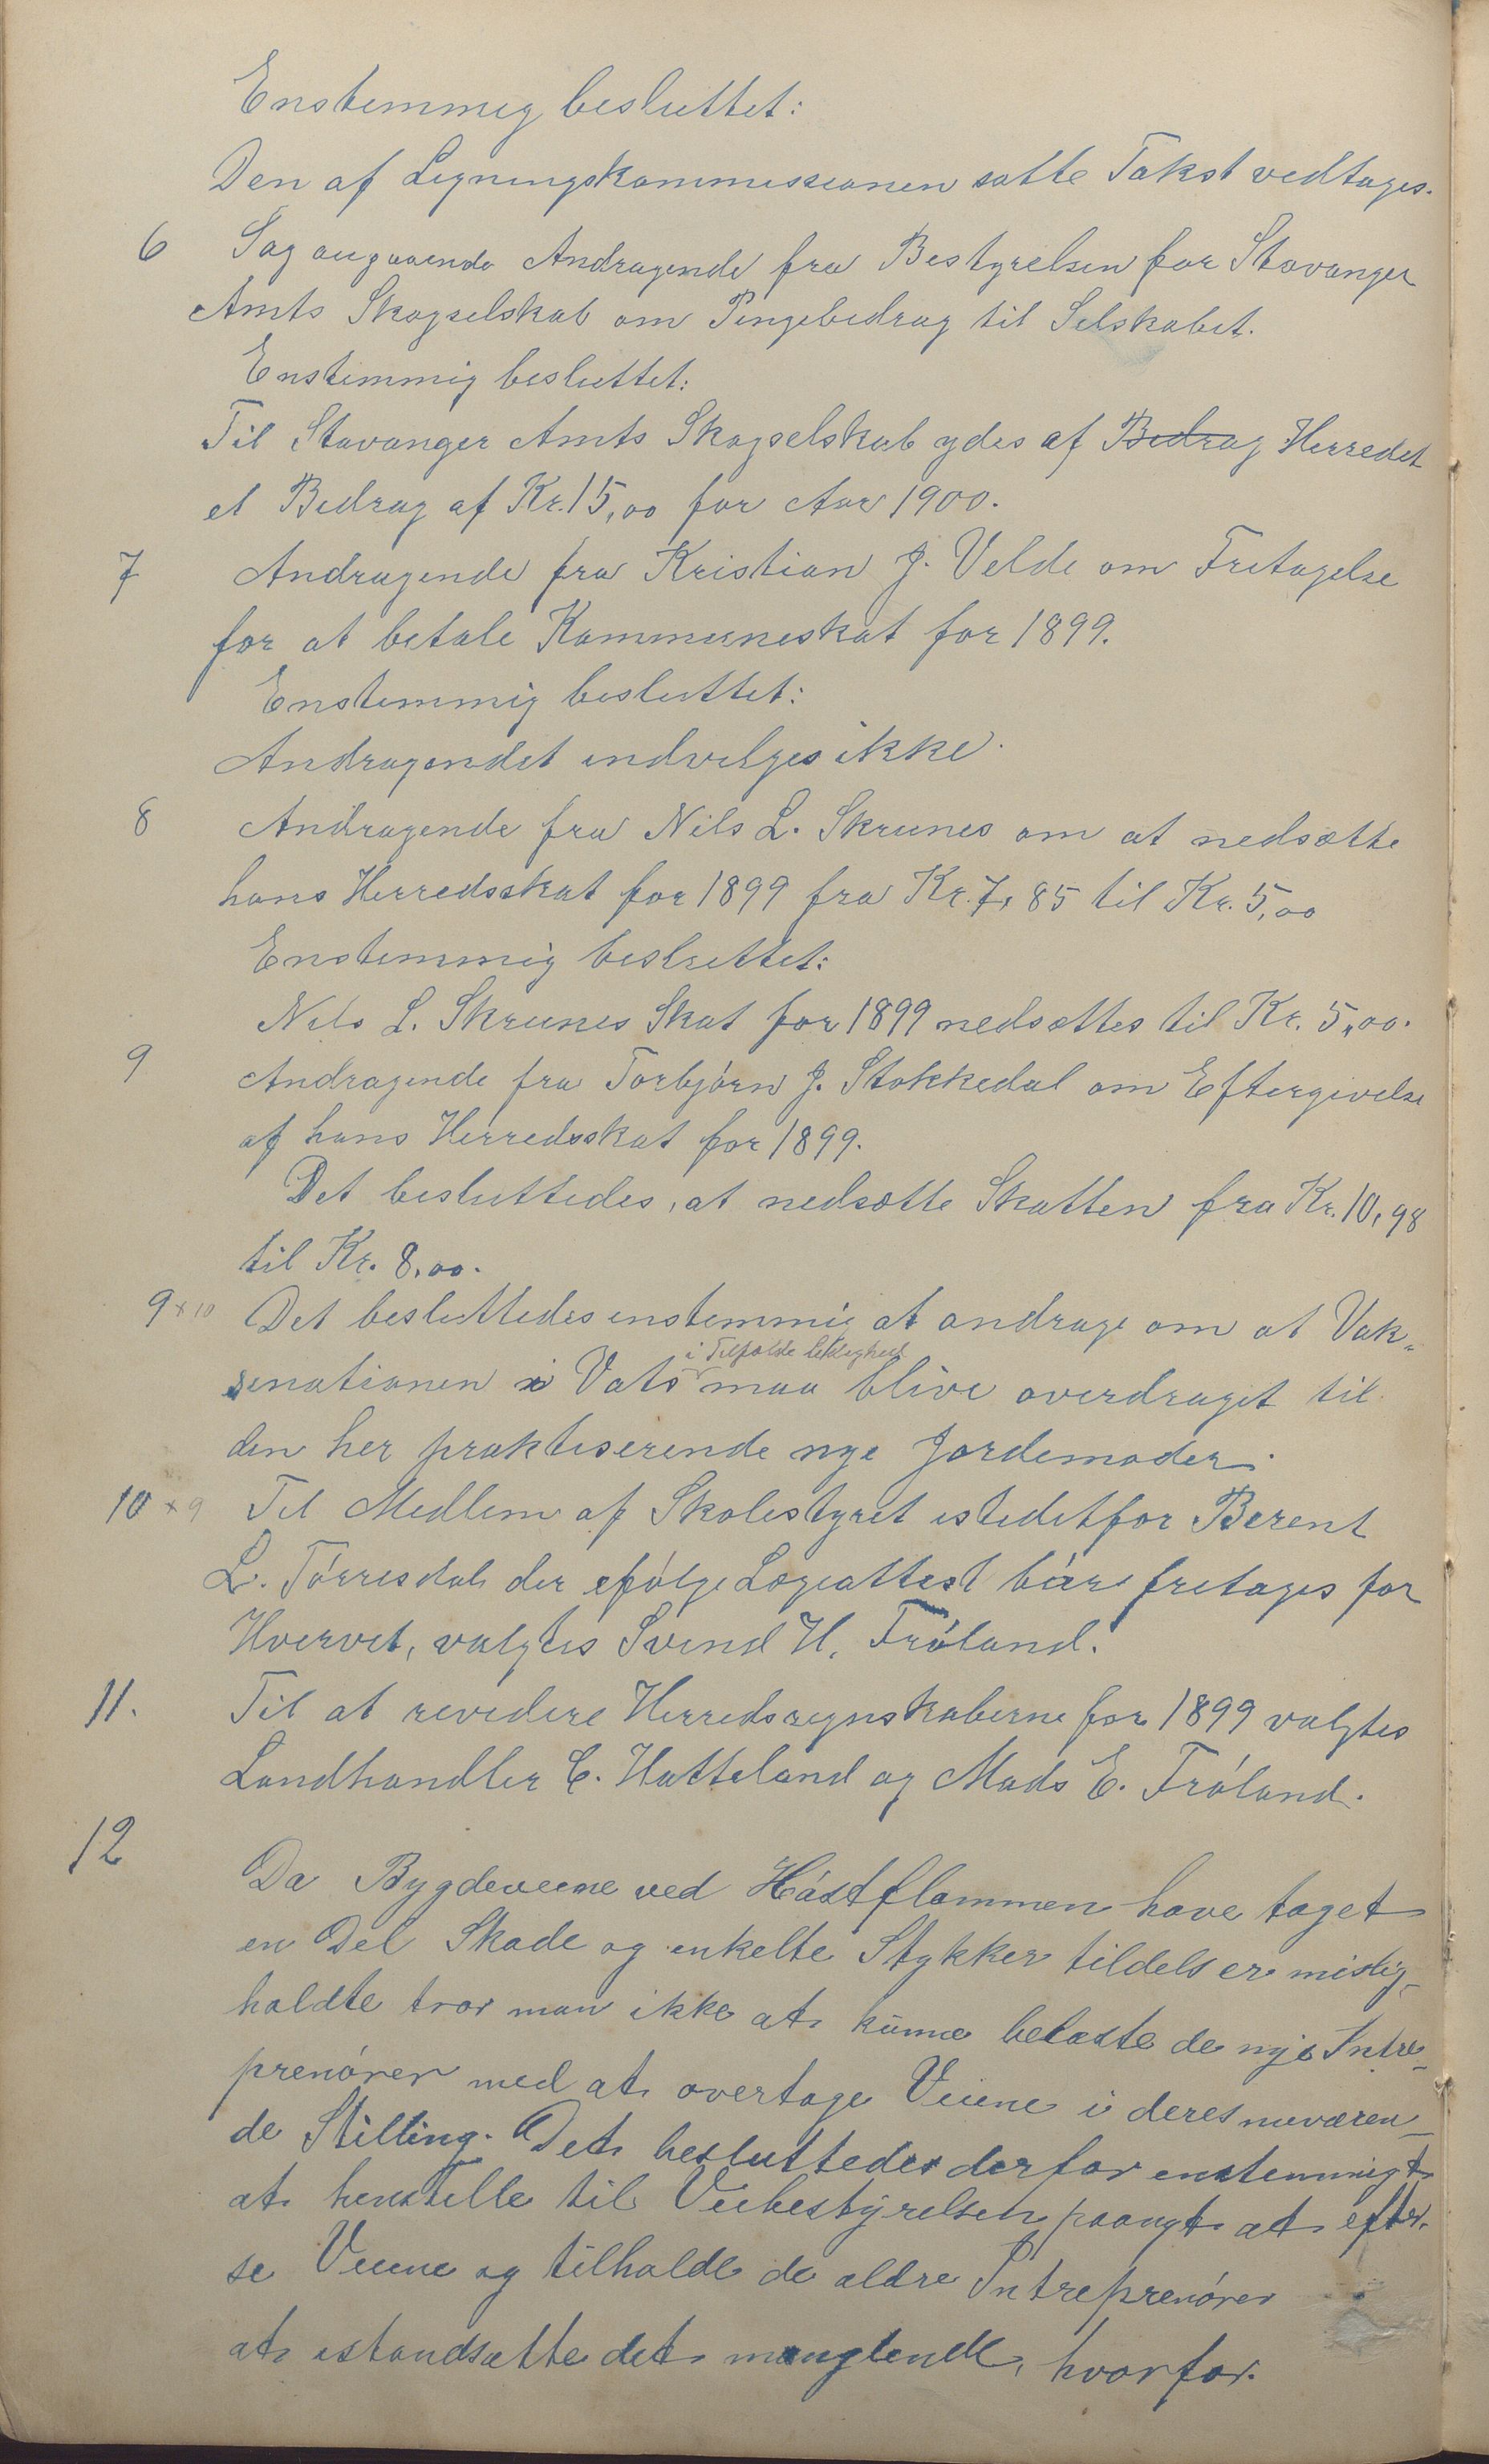 Enstemmig besluttet:
Den af Ligningskommissionen satte Takst vedtages.
6 Sag angaaende Andragende fra Bestyrelsen for Stavanger
Amts Skogselskab om Pengebedrag til Selskabet.
Enstemmig besluttet:
Til Stavanger Amts Skogselskab ydes af Bedrag Herredet
et Bedrag af Kr. 15,00 for Aar 1900.
7 Andragende fra Kristian J. Velde om Fritagelse
for at betale Kommuneskat for 1899.
Enstemmig besluttet:
Andragendet indvilges ikke.
8 Andragende fra Nils L. Skrunes om at nedsætte
hans Herredsskat for 1899 fra Kr. 7,85 til Kr. 5,00
Enstemmig besluttet:
Nils L. Skrunes Skat for 1899 nedsættes til Kr. 5,00.
9 Andragende fra Torbjörn J. Stokkedal om Eftergivelse
af hans Herredsskat for 1899.
Det besluttedes, at nedsætte Skatten fra Kr. 10,98
til Kr. 8,00.
9 x 10 Det besluttedes enstemmig at andrage om at Vak-
i Tilfælde leilighed
sinationen i Vats maa blive overdraget til
den her praktiserende nye Jordemoder.
10 x 9 Til Medlem af Skolestyret istedetfor Berent
L. Tórresdal der ifólge Lægeattest bór fritages for
Hvervet, valgtes Svend H. Fróland.
11. Til at revidere Herredsregnskaberne for 1899 valgtes
Landhandler C. Hatteland og Mads E. Fróland.
12
Da Bygdeveiene ved Hóstflommen have taget
en Del Skade og enkelte Stykker tildels er mislig-
holdte tror man ikke at kunne belaste de nye Intre-
prenórer med at overtage Veiene i deres nuværen-
de Stilling. Det besluttedes derfor enstemmigt
at henstille til Veibestyrelsen paanyt at efter-
se Veiene og tilholde de ældre Intreprenórer
at istandsætte det manglende, hvorfor.